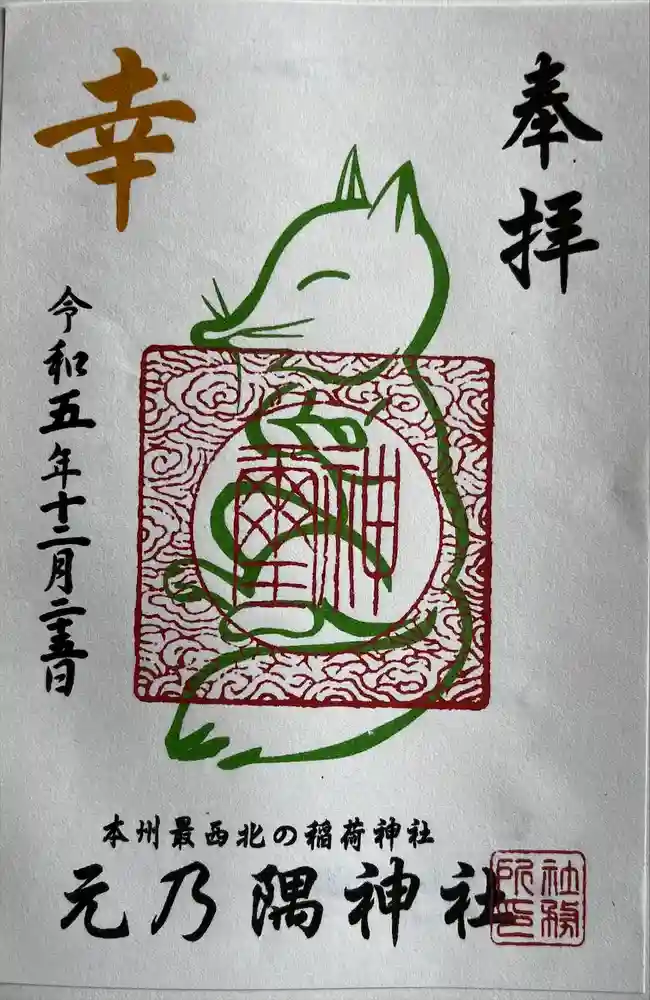 奉拝
幸
令和五年十二月二十五日
神璽
本州最西北の稲荷神社
元乃隅神社
社務所印